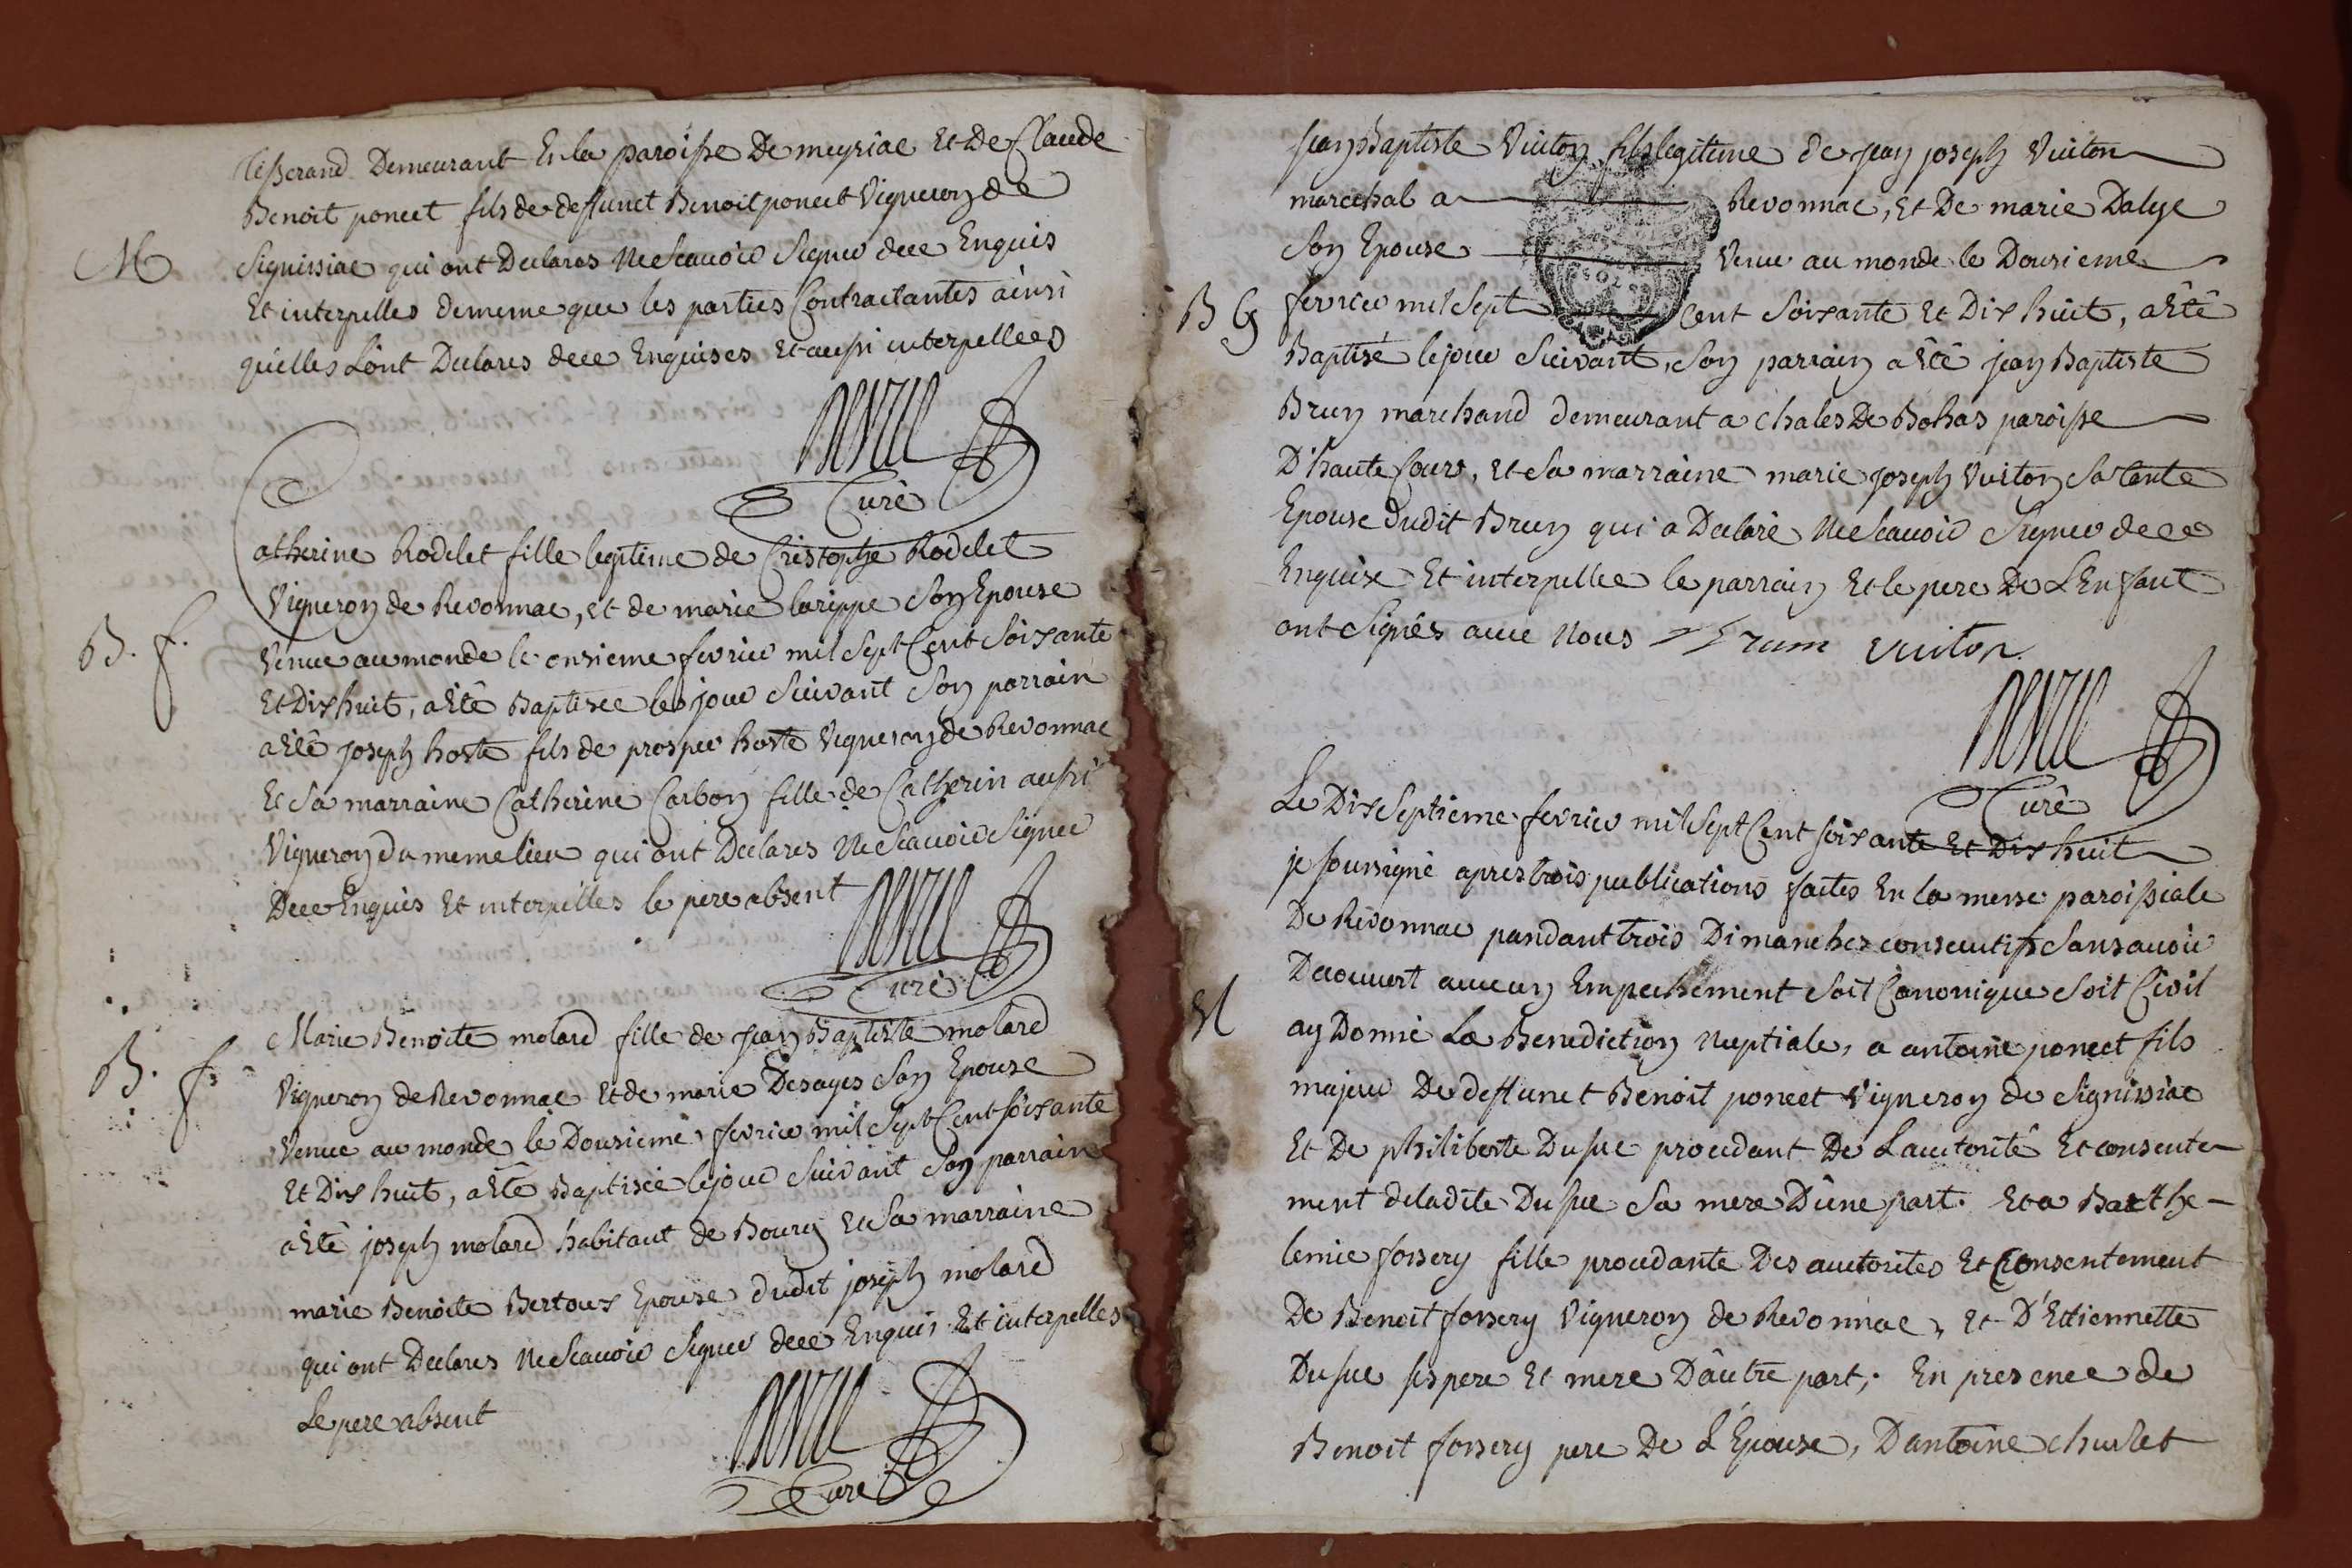 tisserand Demeurant En la paroisse De meyriac Et De Claude
Benoit poncet fils de deffunct Benoit poncet Vigneron de
M
Signissiac qui ont Declarés ne Scauoir Signer dece Enquis
Et interpellés de meme que les parties Contractantes ainsi
qu'elles L'ont Declarés dece Enquises Et aussi interpellées
Curé
Catherine Rodelet fille legitime de Cristophe Rodelet
Vigneron de Revonnac, et de marie larippe Son Epouse
B. f.
Venue au monde le onsieme fevrier mil Sept Cent Soixante
Et Dix huit, a Eté Baptisée le jour Suivant Son parrain
a Eté joseph hoste fils de prosper hoste Vigneron de Revonnac
Et Sa marraine Catherine Carbon fille de Catherin aussi
Vigneron du meme lieu qui ont Declarés ne Scauoir Signer
Dece Enquis Et interpellés le pere absent
Curé
Marie Benoite molard fille de jean Baptiste molard
B. f.
Vigneron de Revonnac Et de marie Desages Son Epouse
Venue au monde le Dousieme fevrier mil Sept Cent soixante
Et Dix huit, a Eté Baptisée le jour Suivant Son parrain
a Eté joseph molard habitant de Bourg Et Sa marraine
marie Benoite Bertoux Epouse dudit joseph molard
qui ont Declarés ne Scauoir Signer dece Enquis Et interpellés
Le pere absent
Curé
jean Baptiste Vuiton fils legitime de jean joseph Vuiton
marechal a Revonnac, Et De marie Dalye
Son Epouse Venue au monde le Dousieme
B G
fevrier mil Sept Cent Soixante Et Dix huit, a Eté
Baptisé le jour Suivant, Son parrain a Eté jean Baptiste
Brun marchand demeurant a Chales De Bohas paroisse
D'haute Cours, Et Sa marraine marie joseph Vuiton Sa tante
Epouse dudit Brun qui a Declaré ne Scauoir Signer dece
Enquise Et interpellée le parrain Et le pere De L'Enfant
ont Signés auec Nous Brum vuiton
Curé
Le Dix Septieme fevrier mil Sept Cent soixante Et Dix huit
je soussigné apres trois publications faites En la messe paroissiale
De Revonnac pandant trois Dimanches consecutifs Sans auoir
Decouuert aucun Empechement Soit Canonique Soit Civil
M
ay Donné La Benediction nuptiale, a antoine poncet fils
majeur De deffunct Benoit poncet Vigneron de Signissiac
Et De philiberte Dusuc procedant De L'auctorité Et consente
ment de ladite Dusuc Sa mere D'une part. Et a Barthe-
lemie fossery fille procedante Des auctorités Et Consentement
De Benoit fossery Vigneron de Revonnac, Et D'Ettiennette
Dusuc ses pere Et mere D'autre part; En presence de
Benoit fossery pere De L'Epouse, D'antoine chuslet